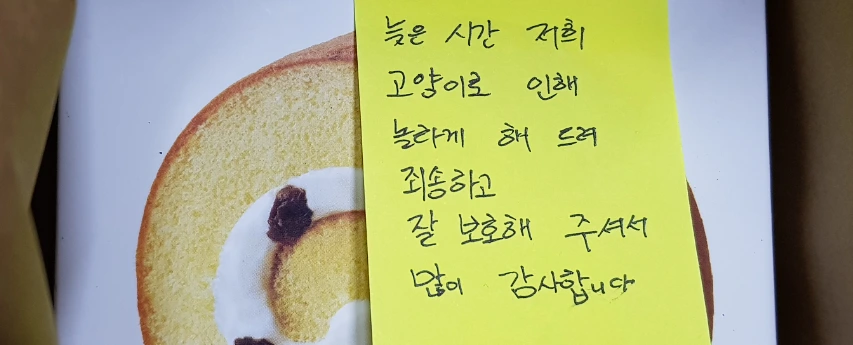 늦은 시간 저희
고양이로 인해
놀라게 해 드려
죄송하고
잘 보호해 주셔서
많이 감사합니다